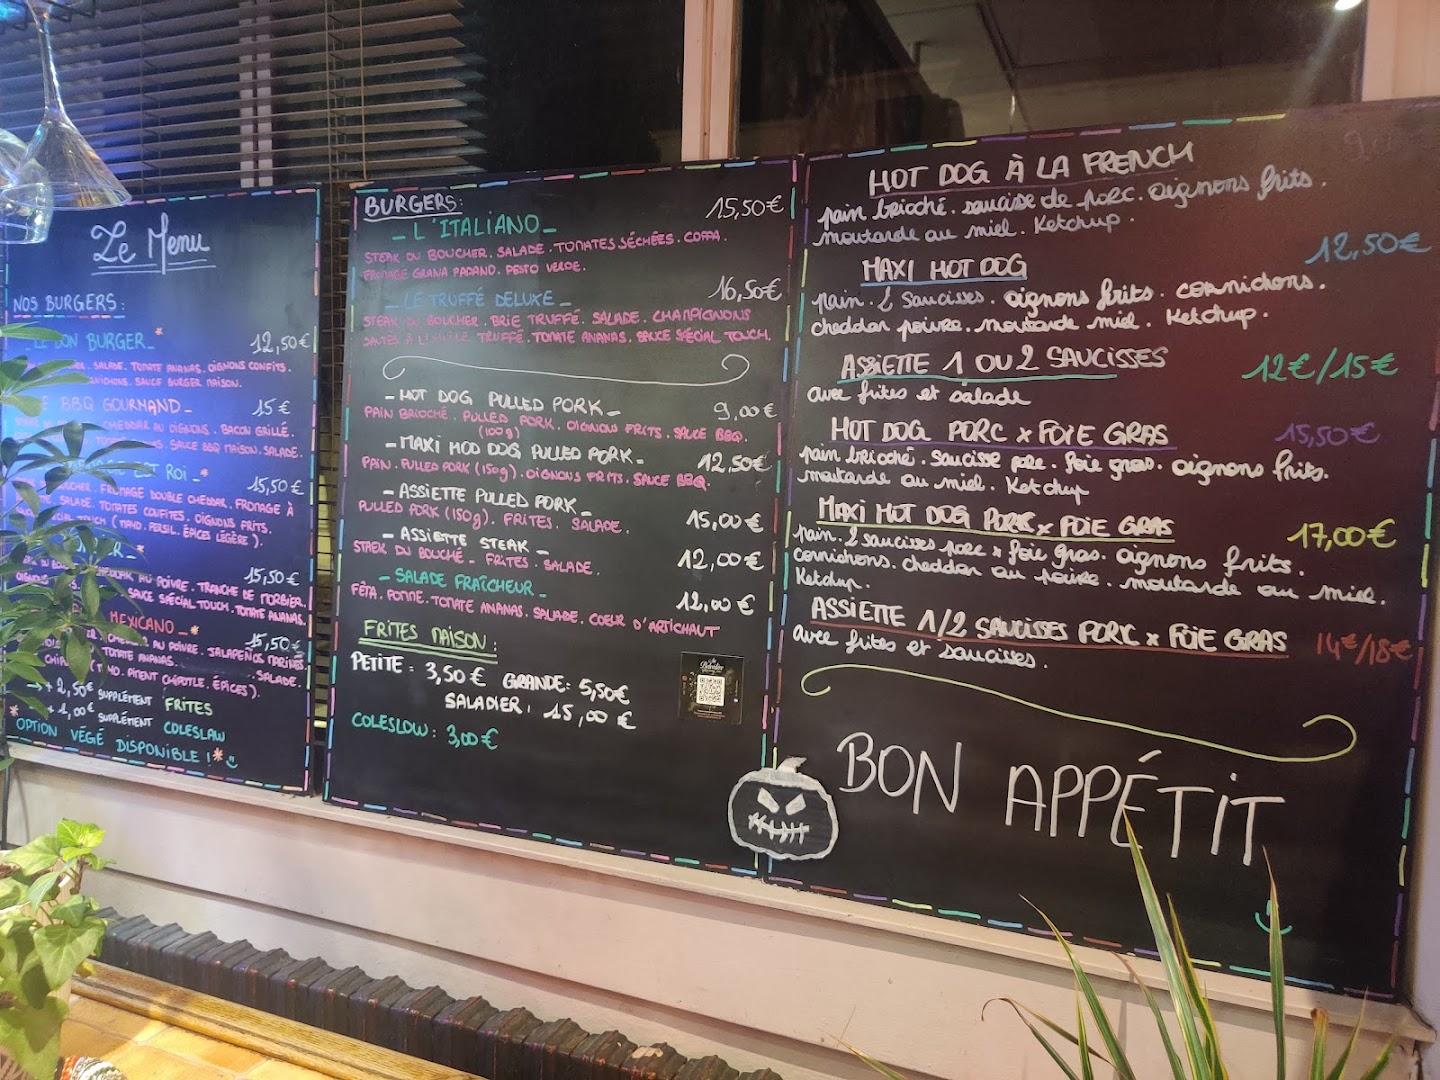 Le Menu
NOS BURGERS:
BURGER_* 12,50€
SALADE. TOMATE ANANAS. OIGNONS CONFITS.
SAUCE BURGER MAISON.
BBQ GOURMAND_ 15€
CHEDDAR AU OIGNONS. BACON GRILLÉ.
SAUCE BBQ MAISON. SALADE.
ROI_* 15,50€
FROMAGE DOUBLE CHEDDAR. FROMAGE À
SALADE. TOMATES CONFITES. OIGNONS FRITS.
TOUCH (MAYO. PERSIL. ÉPICES LÉGÈRE).
15,50€
AU POIVRE. TRANCHE DE MORBIER.
SAUCE SPÉCIAL TOUCH. TOMATE ANANAS.
MEXICANO_* 15,50€
AU POIVRE. JALAPEÑOS MARINÉS.
TOMATE ANANAS. SALADE.
PIMENT CHIPOTLE. ÉPICES).
+ 2,50€ SUPPLÉMENT FRITES
+ 1,00€ SUPPLÉMENT COLESLAW
OPTION VÉGÉ DISPONIBLE !*
BURGERS:
_ L'ITALIANO_ 15,50€
STEAK DU BOUCHER. SALADE. TOMATES SÉCHÉES. COPPA.
FROMAGE GRANA PADANO. PESTO VERDE.
_ LE TRUFFÉ DELUXE_ 16,50€
STEAK DU BOUCHER. BRIE TRUFFÉ. SALADE. CHAMPIGNONS
TRUFFÉ. TOMATE ANANAS. SAUCE SPÉCIAL TOUCH.
- HOT DOG PULLED PORK_ 9,00€
PAIN BRIOCHÉ. PULLED PORK. OIGNONS FRITS. SAUCE BBQ.
(100g)
- MAXI HOD DOG PULLED PORK- 12,50€
PAIN. PULLED PORK (150g). OIGNONS FRITS. SAUCE BBQ.
- ASSIETTE PULLED PORK- 15,00€
PULLED PORK (150g). FRITES. SALADE.
- ASSIETTE STEAK_ 12,00€
STAEK DU BOUCHÉ - FRITES. SALADE.
- SALADE FRAÎCHEUR_ 12,00€
FÊTA. POMME. TOMATE ANANAS. SALADE. COEUR D'ARTICHAUT
FRITES MAISON:
PETITE: 3,50€ GRANDE: 5,50€
SALADIER: 15,00€
COLESLOW: 3,00€
HOT DOG À LA FRENCH
pain brioché. saucisse de porc. oignons frits.
moutarde au miel. Ketchup.
MAXI HOT DOG 12,50€
pain. 2 saucisses. oignons frits. cornichons.
cheddar poivre. moutarde miel. Ketchup.
ASSIETTE 1 OU 2 SAUCISSES 12€/15€
avec frites et salade
HOT DOG PORC x FOIE GRAS 15,50€
pain brioché. saucisse porc. foie gras. oignons frits.
moutarde au miel. Ketchup
MAXI HOT DOG PORK x FOIE GRAS 17,00€
pain. 2 saucisses porc x foie gras. oignons frits.
cornichons. cheddar au poivre. moutarde au miel.
Ketchup.
ASSIETTE 1/2 SAUCISSES PORK x FOIE GRAS 14€/18€
avec frites et saucisses.
BON APPÉTIT